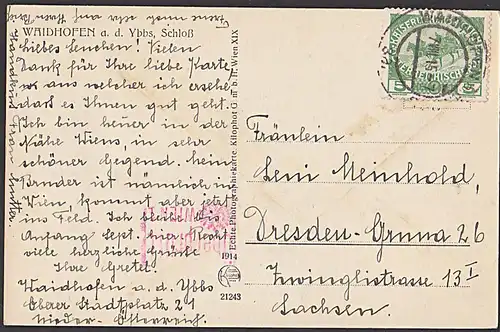 WAIDHOFEN a. d. Ybbs, Schloß
Liebes Lenchen! Vielen
Dank für Ihre liebe Karte
aus welcher ich ersehe
dass es Ihnen gut geht.
Ich bin heuer in der
Nähe Wiens, in sehr
schöner Gegend. Mein
Bruder ist nämlich in
Wien, kommt aber jetzt
ins Feld. Ich bleibe bis
Anfang Sept. hier.
viele herzliche Grüße
Ihre Gretel
Waidhofen a. d. Ybbs
Oberer Stadtplatz 21
Nieder-Österreich.
Echte Photographiekarte. Kilophot G. m. b. H. Wien XIX
1914
21243
Fräulein
Leni Meinhold,
Dresden-Gruna 26
Zwinglistrasse 13 I
Sachsen.
5